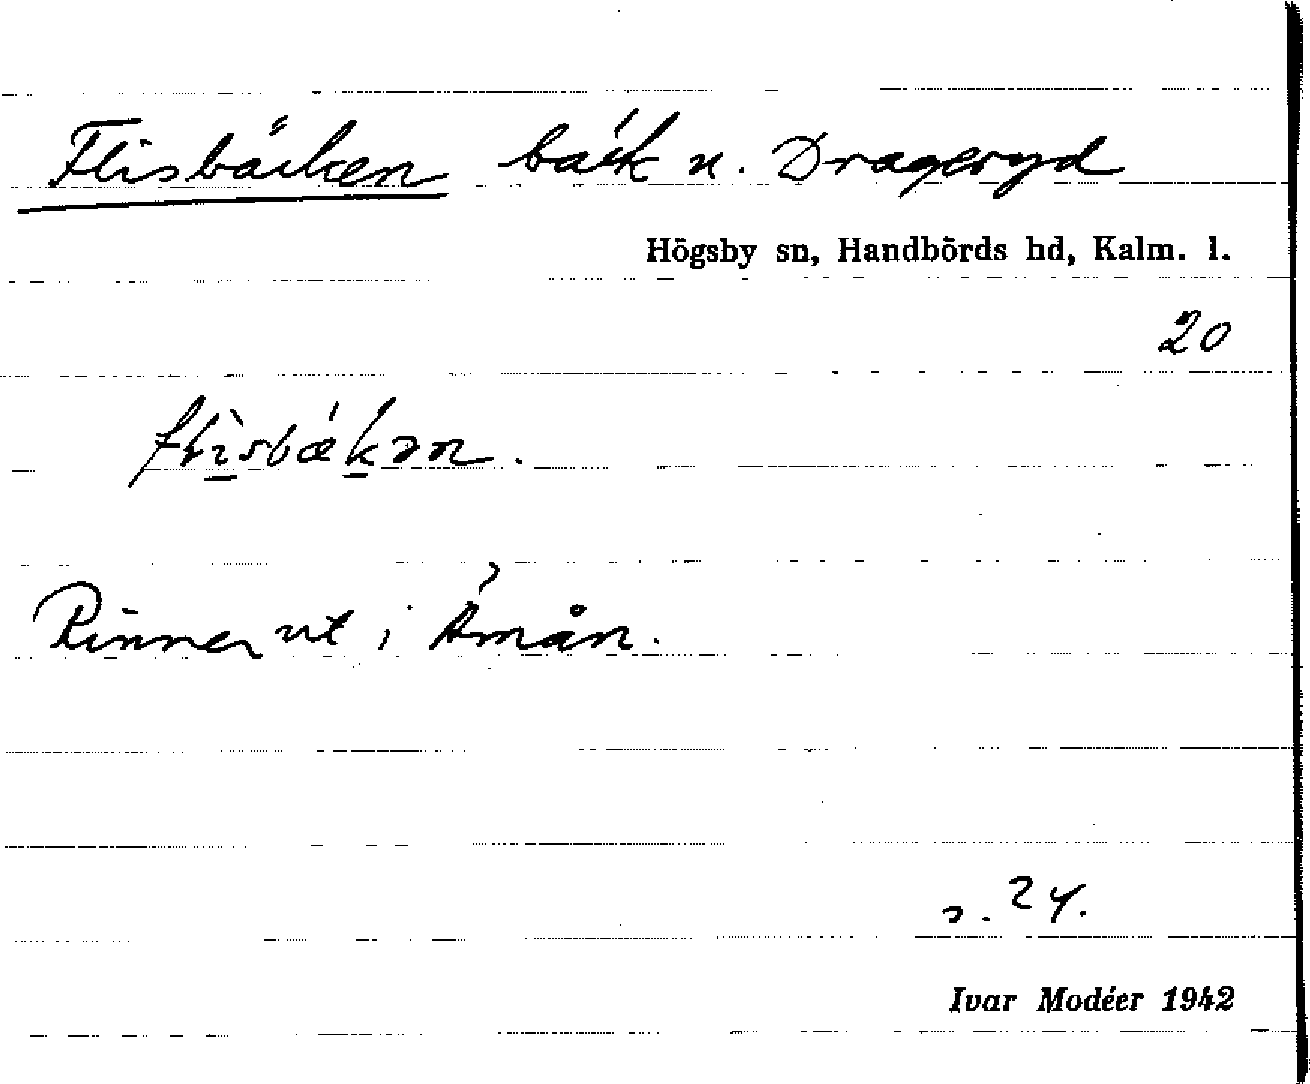 Flisbäcken bäck n. Drageryd
Högsby sn, Handbörds hd, Kalm. l.
20
flìsbækən.
Rinner ut i Åmån.
s. 24.
Ivar Modéer 1942